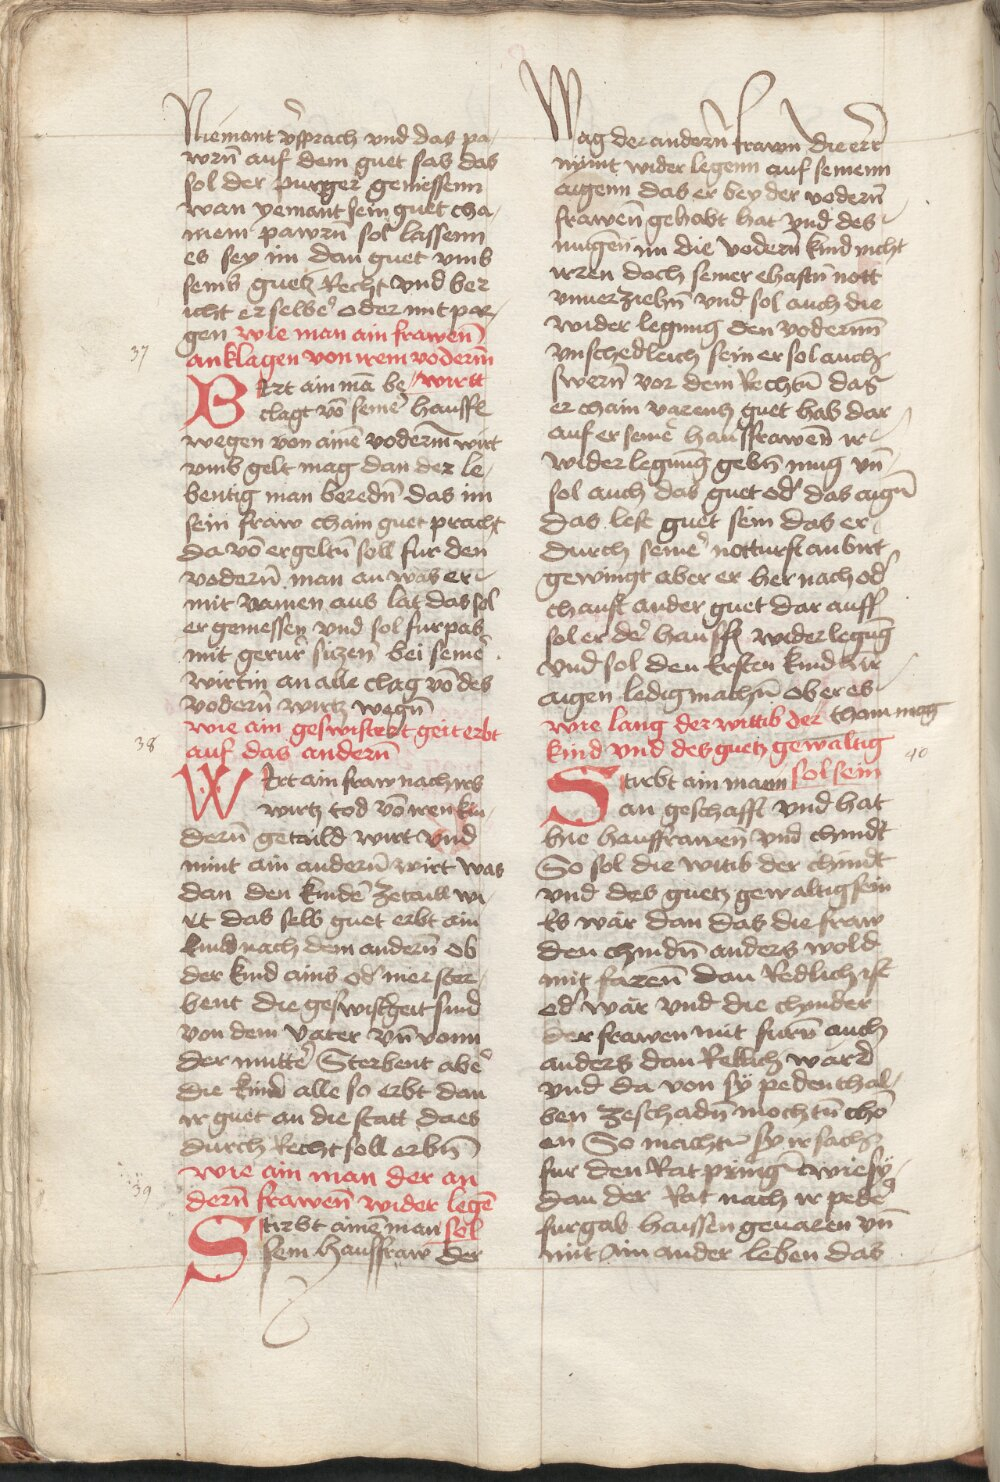 Niemant vsprach vnd das pa-
wrn auf dem guet sas das
sol der purger geniessenn
wan yemant sein guet cha-
niem pawrn sol lassenn
es sey im dan guet vmb
seins guetz Recht vnd ber
icht er selber oder mit par-
gen wie man ain frawen
37
anklagen von irem vodernn
wirtt
Wirt ain man be-
clagt von seiner hausf
wegen von ainem vodernn wirt
vmb gelt mag dan der le-
bentig man beredn das im
sein fraw chain guet pracht
da von er geltn soll fur den
vodern man an was er
mit namen aus lat das sol
er geniessen vnd sol furpas
mit gerur sizen bei seiner
wirtin an alle clag von des
vodern wirtz wegn
wie ain geswistret geit erbt
38
auf das andern
Wirt ain fraw nach irs
wirtz tod von iren kin-
dern getaild wirt vnd
nimt ain andern wirt was
dan den kinden ze taill wi-
rt das selb guet erbt ain
kind nach dem andern ob
der kind ains oder mer ster-
bent die geswistgeit sind
von dem vater vnd vonn
der mutter Sterbent aber
die kind alle so erbt dan
ir guet an die statt da es
durch Recht soll erbn
wie ain man der an
39
dern frawen wider legen
sol
Stirbt ainem man
sein hausfraw der
Mag der andern frawn die er
nymt wider legenn auf seinenn
aigenn das er bey der vodern
frawen gehabt hat vnd des
nutzen in die vodern kind nicht
irren doch seiner ehaftn nott
vnuerziehn vnd sol auch die
wider legung den vodernn
vnschedleich sein er sol auch
swern vor dem Rechtn das
er chain varentz guet hab dar
auf er seiner hausfrawen ir
wider legung gebn mug vnd
sol auch das guet oder das aign
das lest guet sein das er
durch seiner notturft an wirt
gewingt aber er her nach oder
chauft ander guet dar auff
sol er der hausf wider legung
vnd sol den ersten kinden ir
aigen ledig machn ob er es
getham mag
wie lang der wittib der
kind vnd des guetz gewaltig
40
sol sein
Stirbt ain mann
an geschafft vnd hat
hie hausfrawen vnd chindt
So sol die witib der chindt
vnd des guetz gewaltig sein
Es wär dan das die fraw
den chindn anders wold
mit farenn dan Redlich ist
oder wär vnd die chinder
der frawen mit furn auch
anders dan Redlich ward
vnd da von sy pedenthal-
ben ze schadn mochtn cho-
en So machtn sy ir sach
fur den Rat pringn wie sy
dan der Rat nach ir peder
furgab haissen geuaren vnd
mit ain ander leben das